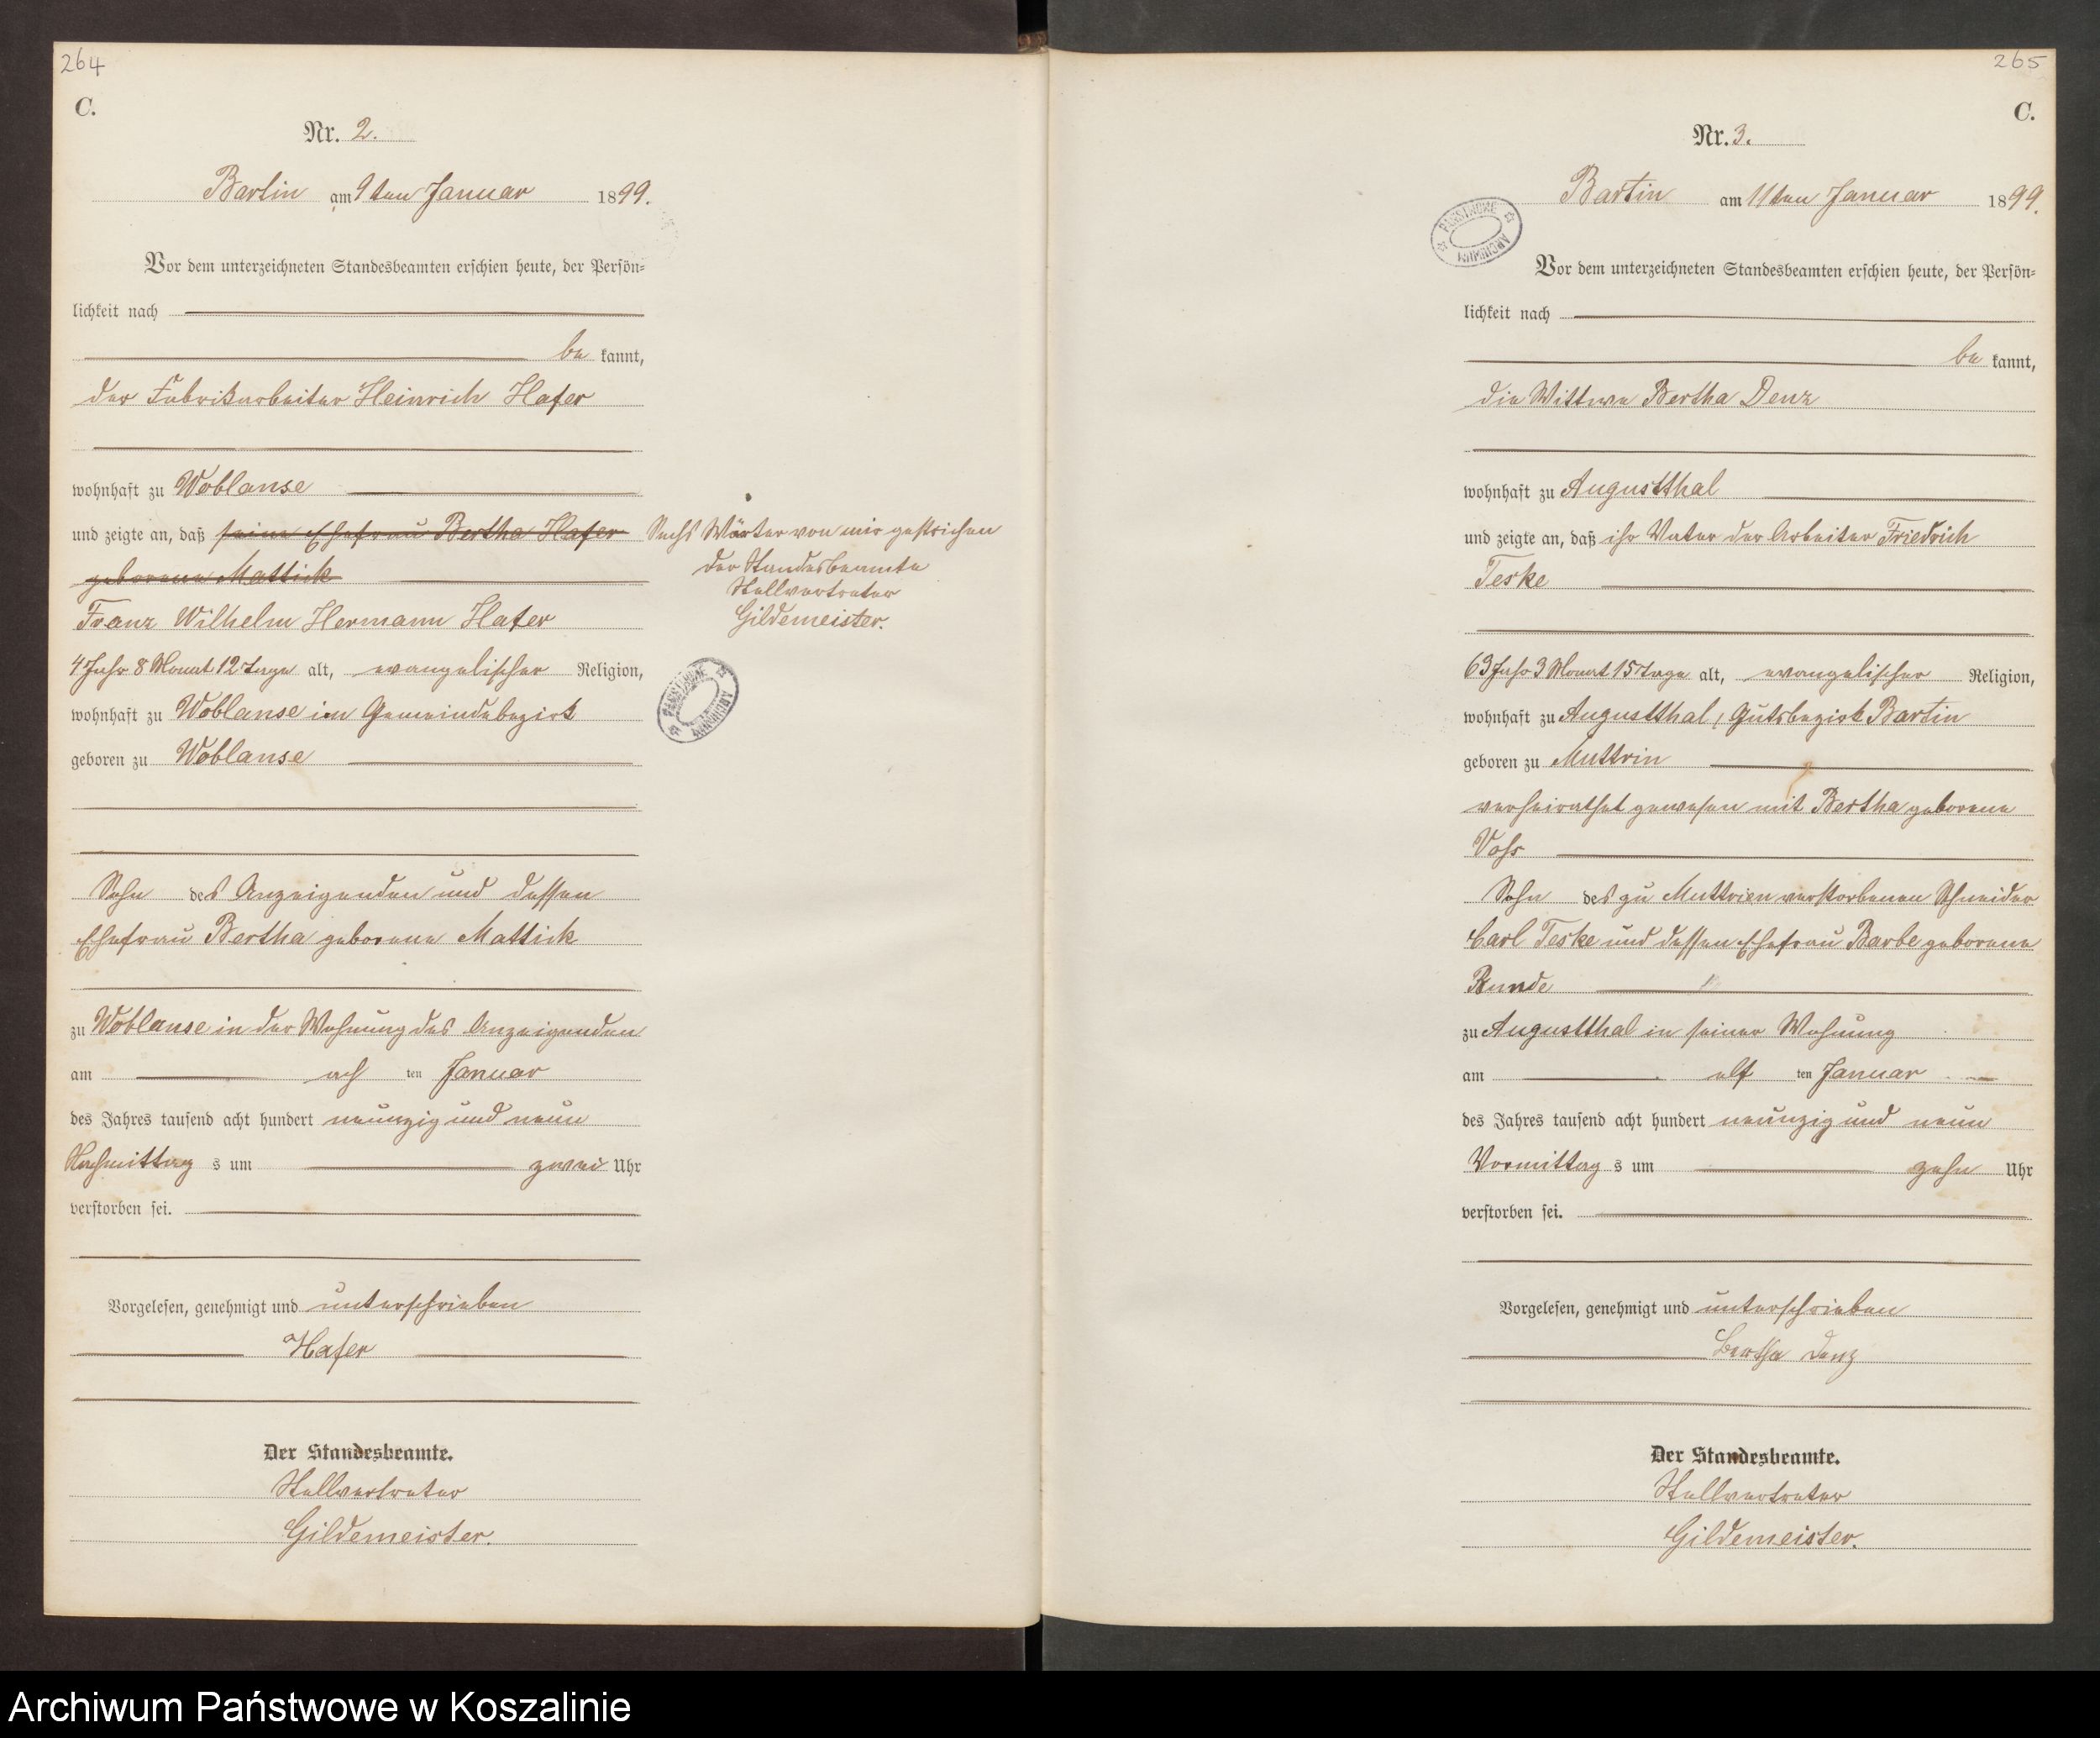 264
C.
Nr. 2.
Bartin am 9ten Januar 1899.
Vor dem unterzeichneten Standesbeamten erschien heute, der Persön=
lichkeit nach
be kannt,
der Fabrikarbeiter Heinrich Hafer
wohnhaft zu Woblanse
und zeigte an, daß seine Ehefrau Bertha Hafer
geborene Mattick
Franz Wilhelm Hermann Hafer
4 Jahr 8 Monat 12 Tage alt, evangelischer Religion,
wohnhaft zu Woblanse im Gemeindebezirk
geboren zu Woblanse
Sohn des Anzeigenden und dessen
Ehefrau Bertha geborene Mattick
zu Woblanse in der Wohnung des Anzeigenden
am ach ten Januar
des Jahres tausend acht hundert neunzig und neun
Nachmittag s um zwei Uhr
verstorben sei.
Vorgelesen, genehmigt und unterschrieben
Hafer
Der Standesbeamte.
Stellvertreter
Gildemeister.
Sechs Wörter von mir gestrichen
der Standesbeamte
Stellvertreter
Gildemeister.
PAŃSTWOWE ARCHIWUM
265
C.
Nr. 3.
PAŃSTWOWE ARCHIWUM
Bartin am 11ten Januar 1899.
Vor dem unterzeichneten Standesbeamten erschien heute, der Persön=
lichkeit nach
be kannt,
die Wittwe Bertha Denz
wohnhaft zu Augustthal
und zeigte an, daß ihr Vater der Arbeiter Friedrich
Teske
63 Jahr 3 Monat 15 Tage alt, evangelischer Religion,
wohnhaft zu Augustthal, Gutsbezirk Bartin
geboren zu Muttrin
verheirathet gewesen mit Bertha geborene
Voss
Sohn des zu Muttrien verstorbenen Schneider
Carl Teske und dessen Ehefrau Barbe geborene
Bunde
zu Augustthal in seiner Wohnung
am elf ten Januar
des Jahres tausend acht hundert neunzig und neun
Vormittag s um zehn Uhr
verstorben sei.
Vorgelesen, genehmigt und unterschrieben
Bertha Denz
Der Standesbeamte.
Stellvertreter
Gildemeister.
Archiwum Państwowe w Koszalinie